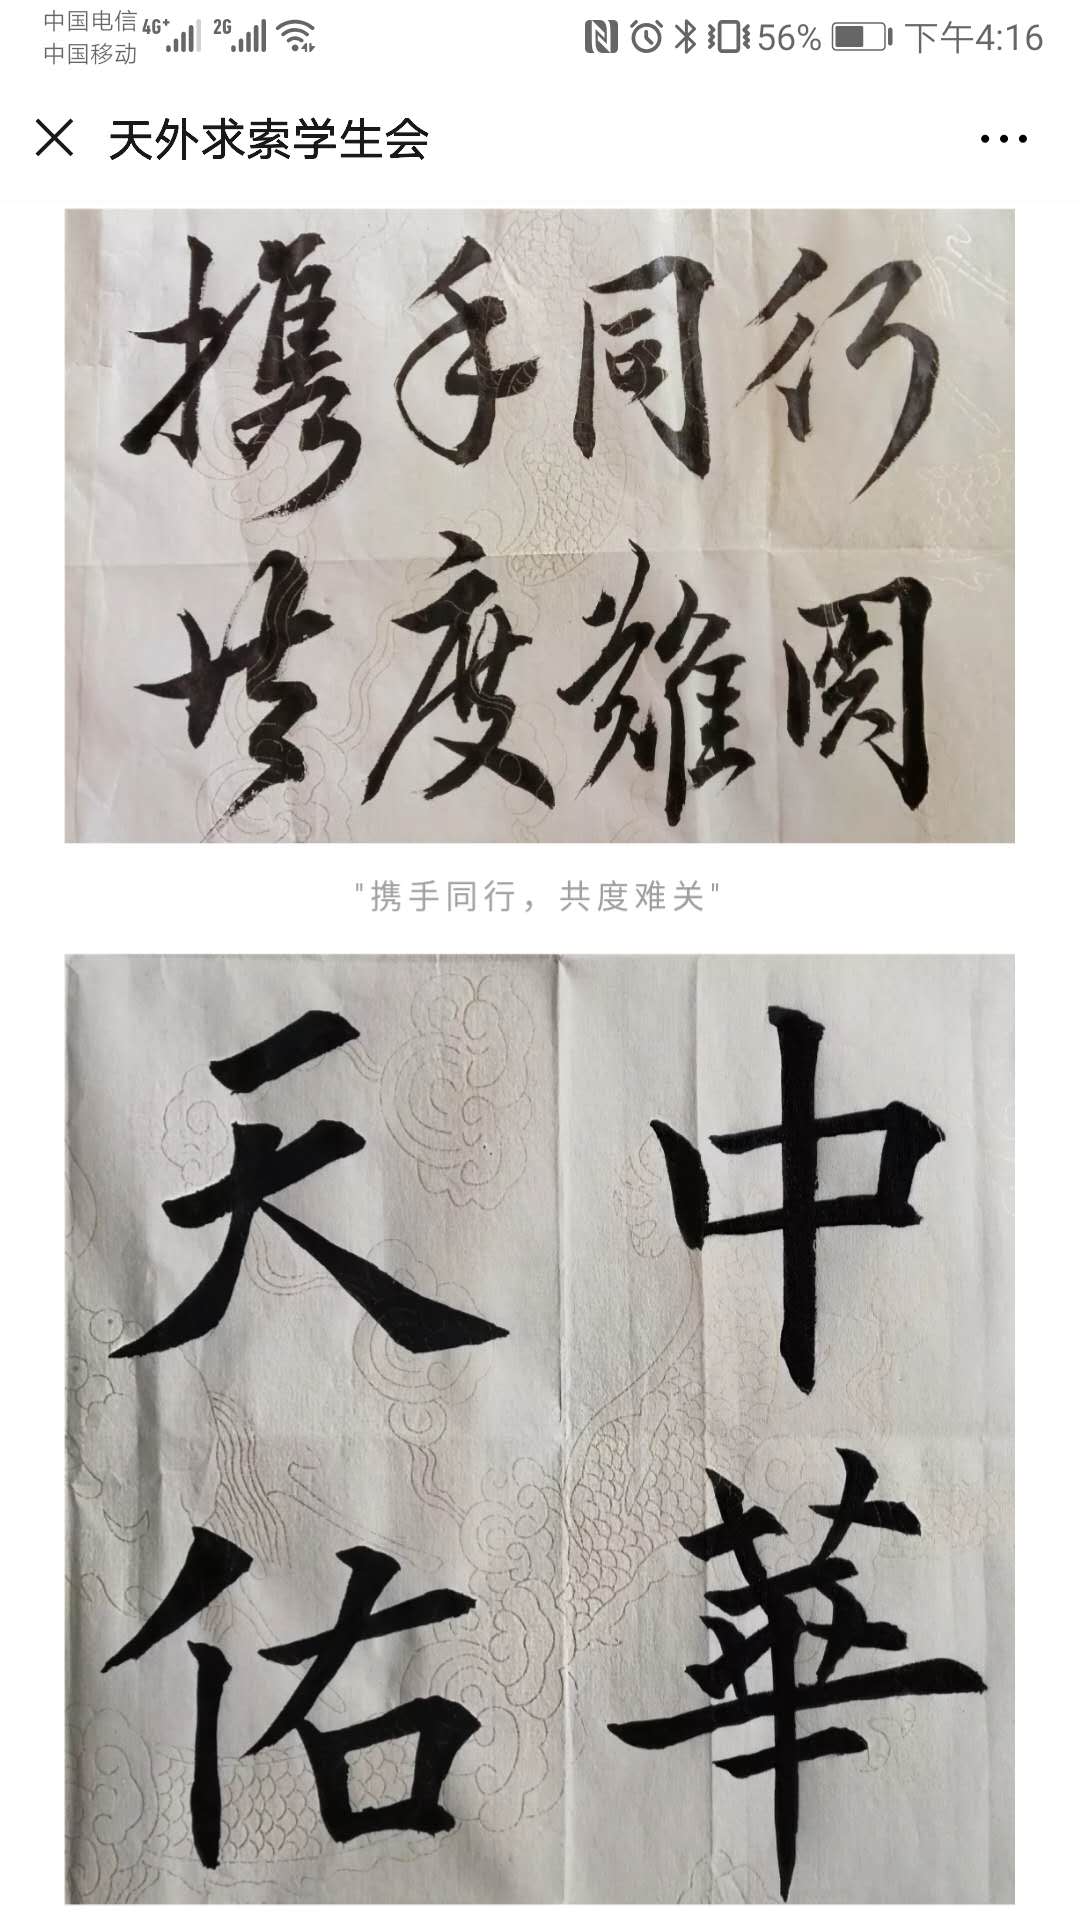 中国电信 4G+ 2G 56% 下午4:16
中国移动
天外求索学生会
携手同行
共度難関
"携手同行，共度难关"
天中
佑華